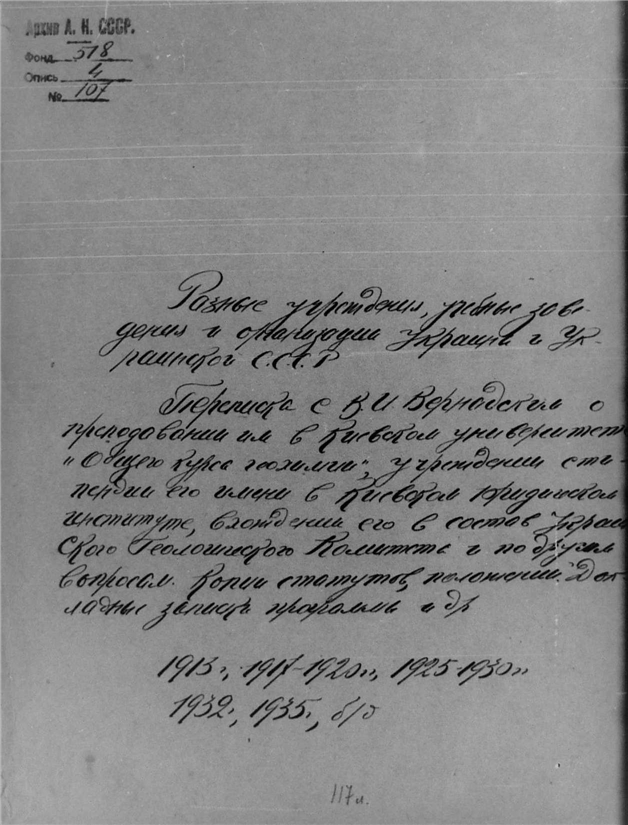 Архив А. Н. СССР.
Фонд 518
Опись 4
№ 107
Разные учреждения, учебные заве-
дения и организации Украины и Ук-
раинской С.С.С.Р
Переписка с В.И Вернадским о
преподавании им в Киевском университете
"Общего курса геохимии", учреждении сти-
пендии его имени в Киевском юридическом
институте, вхождении его в состав Украин
ского Геологического Комитета и по другим
вопросам. Копии статутов, положений. Док-
ладные записки программы и др
1913г., 1917-1920гг., 1925-1930гг
1932г., 1935г., б/д
117л.